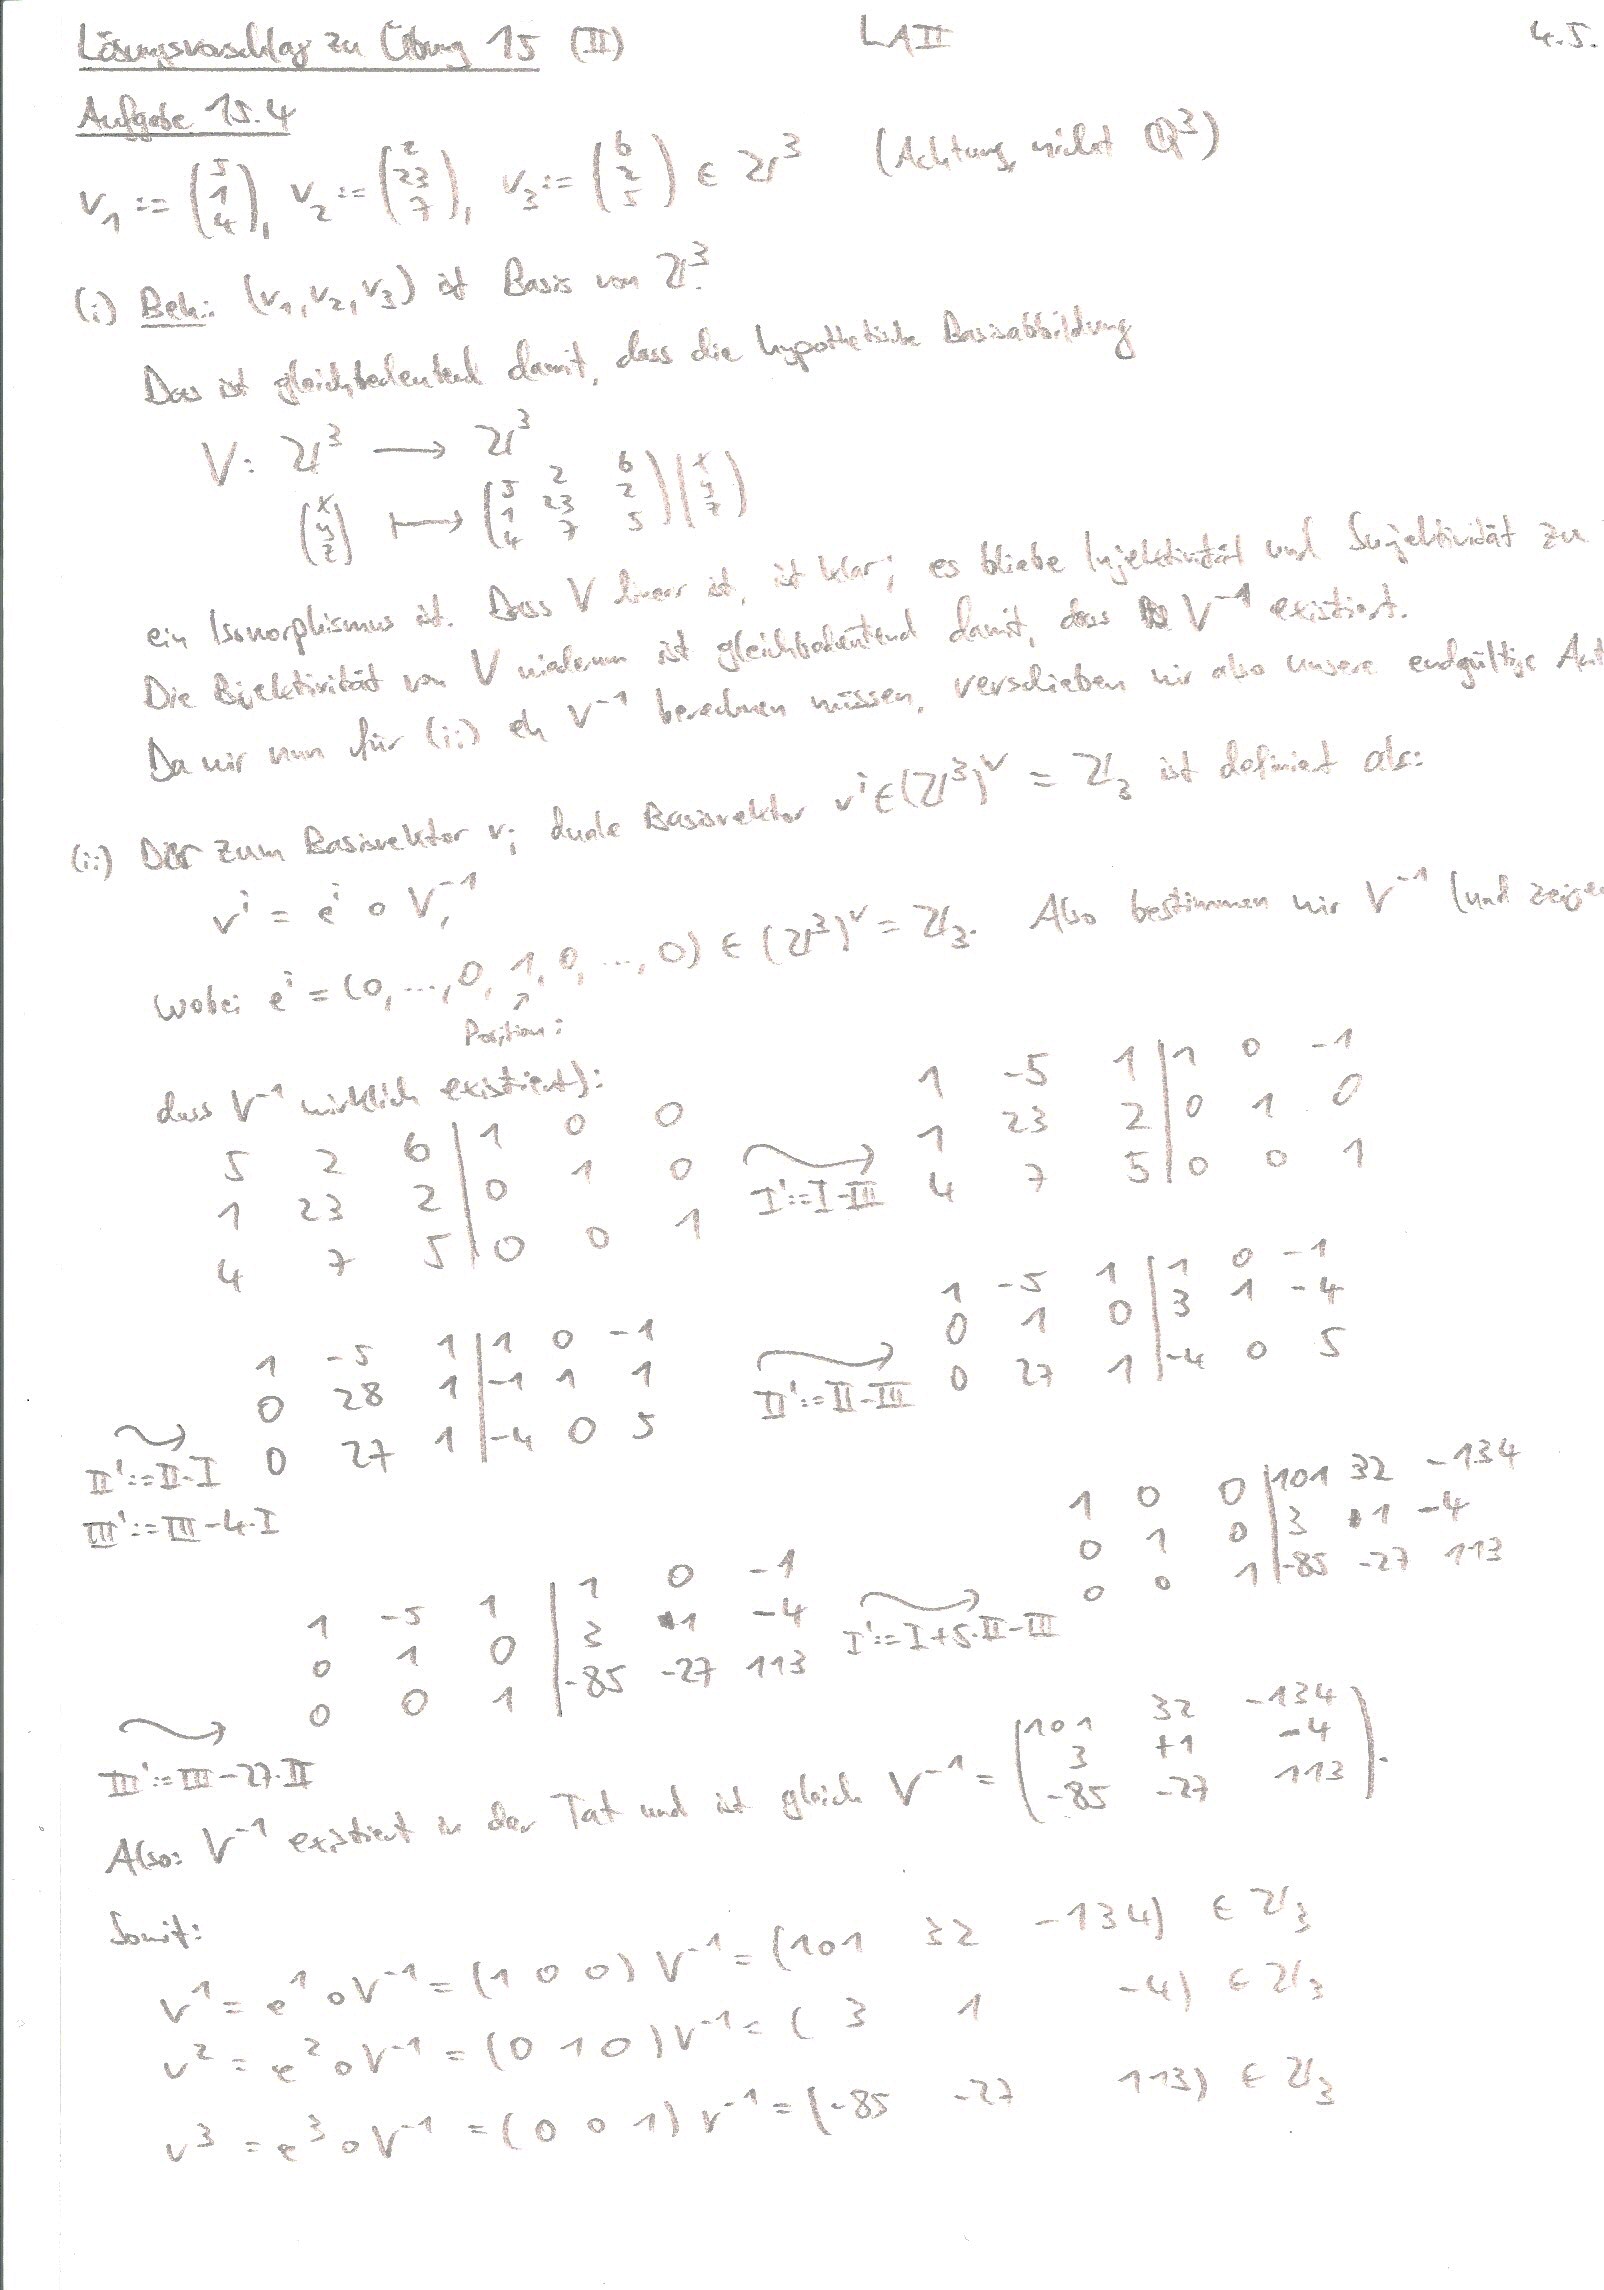 Lösungsvorschlag zu Übung 15 (II) LAII 4.5.
Aufgabe 15.4
v₁ := (5 1 4), v₂ := (2 23 7), v₃ := (6 2 5) ∈ ℤ³ (Achtung, nicht ℚ³)
(i) Beh.: (v₁, v₂, v₃) ist Basis von ℤ³.
Das ist gleichbedeutend damit, dass die hypothetische Basisabbildung
V: ℤ³ ⟶ ℤ³
(x y z) ⟼ (5 2 6 / 1 23 2 / 4 7 5) (x y z)
ein Isomorphismus ist. Dass V linear ist, ist klar; es bliebe Injektivität und Surjektivität zu
Die Bijektivität von V wiederum ist gleichbedeutend damit, dass V⁻¹ existiert.
Da wir nun für (ii) eh V⁻¹ berechnen müssen, verschieben wir also unsere endgültige Ant
(ii) Der zum Basisvektor vᵢ duale Basisvektor vⁱ ∈ (ℤ³)ᵛ = ℤ₃ ist definiert als:
vⁱ = eⁱ ∘ V⁻¹,
wobei eⁱ = (0, ..., 0, 1, 0, ..., 0) ∈ (ℤ³)ᵛ = ℤ₃. Also bestimmen wir V⁻¹ (und zeigen
↗
Position i
dass V⁻¹ wirklich existiert):
5 2 6 | 1 0 0
1 23 2 | 0 1 0
4 7 5 | 0 0 1
⟿ I' := I - III
1 -5 1 | 1 0 -1
1 23 2 | 0 1 0
4 7 5 | 0 0 1
⟿ II' := II - I
III' := III - 4·I
1 -5 1 | 1 0 -1
0 28 1 | -1 1 1
0 27 1 | -4 0 5
⟿ II' := II - III
1 -5 1 | 1 0 -1
0 1 0 | 3 1 -4
0 27 1 | -4 0 5
⟿ III' := III - 27·II
1 -5 1 | 1 0 -1
0 1 0 | 3 +1 -4
0 0 1 | -85 -27 113
⟿ I' := I + 5·II - III
1 0 0 | 101 32 -134
0 1 0 | 3 +1 -4
0 0 1 | -85 -27 113
Also: V⁻¹ existiert in der Tat und ist gleich V⁻¹ = (101 32 -134 / 3 +1 -4 / -85 -27 113).
Somit:
v¹ = e¹ ∘ V⁻¹ = (1 0 0) V⁻¹ = (101 32 -134) ∈ ℤ₃
v² = e² ∘ V⁻¹ = (0 1 0) V⁻¹ = (3 1 -4) ∈ ℤ₃
v³ = e³ ∘ V⁻¹ = (0 0 1) V⁻¹ = (-85 -27 113) ∈ ℤ₃